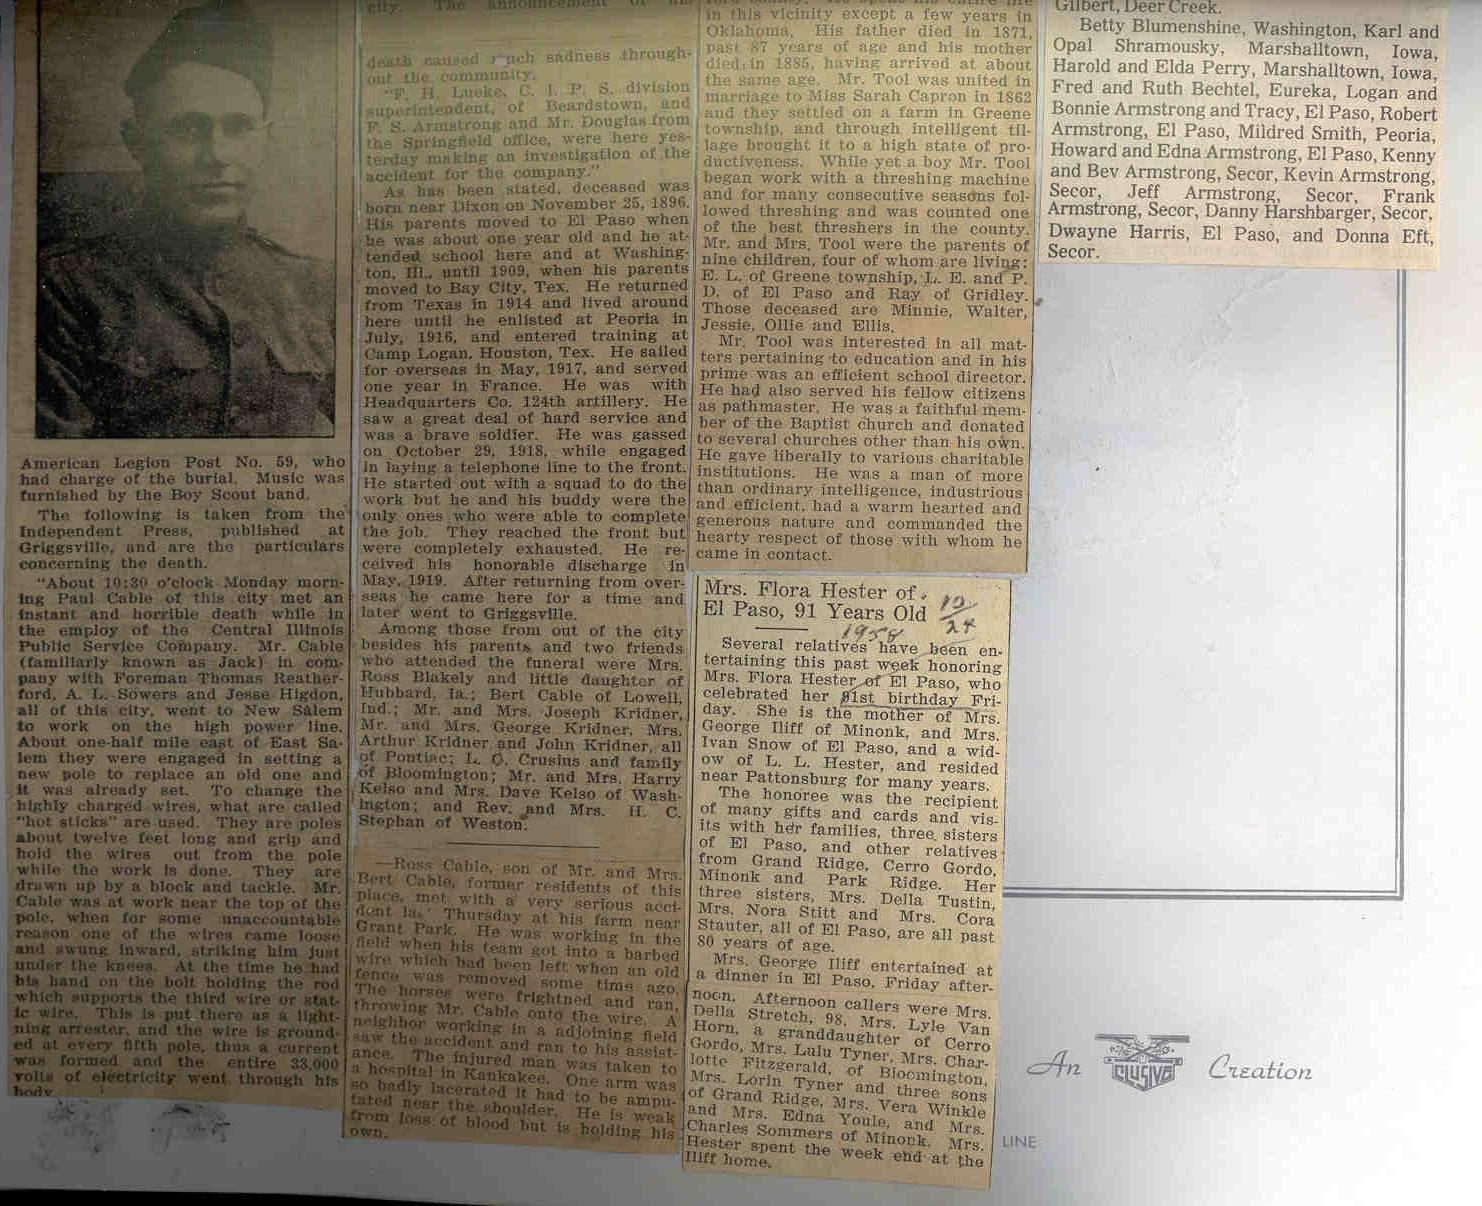 American Legion Post No. 59, who
had charge of the burial. Music was
furnished by the Boy Scout band.
The following is taken from the
Independent Press, published at
Griggsville, and are the particulars
concerning the death.
"About 10:30 o'clock Monday morn-
ing Paul Cable of this city met an
instant and horrible death while in
the employ of the Central Illinois
Public Service Company. Mr. Cable
(familiarly known as Jack) in com-
pany with Foreman Thomas Reather-
ford, A. L. Sowers and Jesse Higdon,
all of this city, went to New Salem
to work on the high power line.
About one-half mile east of East Sa-
lem they were engaged in setting a
new pole to replace an old one and
it was already set. To change the
highly charged wires, what are called
"hot sticks" are used. They are poles
about twelve feet long and grip and
hold the wires out from the pole
while the work is done. They are
drawn up by a block and tackle. Mr.
Cable was at work near the top of the
pole, when for some unaccountable
reason one of the wires came loose
and swung inward, striking him just
under the knees. At the time he had
his hand on the bolt holding the rod
which supports the third wire or stat-
ic wire. This is put there as a light-
ning arrester, and the wire is ground-
ed at every fifth pole, thus a current
was formed and the entire 33,000
volts of electricity went through his
body.
city. The announcement of his
death caused much sadness through-
out the community.
"F. H. Lueke, C. I. P. S. division
superintendent, of Beardstown, and
F. S. Armstrong and Mr. Douglas from
the Springfield office, were here yes-
terday making an investigation of the
accident for the company."
As has been stated, deceased was
born near Dixon on November 25, 1896.
His parents moved to El Paso when
he was about one year old and he at-
tended school here and at Washing-
ton, Ill., until 1909, when his parents
moved to Bay City, Tex. He returned
from Texas in 1914 and lived around
here until he enlisted at Peoria in
July, 1916, and entered training at
Camp Logan, Houston, Tex. He sailed
for overseas in May, 1917, and served
one year in France. He was with
Headquarters Co. 124th artillery. He
saw a great deal of hard service and
was a brave soldier. He was gassed
on October 29, 1918, while engaged
in laying a telephone line to the front.
He started out with a squad to do the
work but he and his buddy were the
only ones who were able to complete
the job. They reached the front but
were completely exhausted. He re-
ceived his honorable discharge in
May, 1919. After returning from over-
seas he came here for a time and
later went to Griggsville.
Among those from out of the city
besides his parents and two friends
who attended the funeral were Mrs.
Ross Blakely and little daughter of
Hubbard, Ia.; Bert Cable of Lowell,
Ind.; Mr. and Mrs. Joseph Kridner,
Mr. and Mrs. George Kridner, Mrs.
Arthur Kridner and John Kridner, all
of Pontiac; L. O. Crusius and family
of Bloomington; Mr. and Mrs. Harry
Kelso and Mrs. Dave Kelso of Wash-
ington; and Rev. and Mrs. H. C.
Stephan of Weston.
—Ross Cable, son of Mr. and Mrs.
Bert Cable, former residents of this
place, met with a very serious acci-
dent Thursday at his farm near
Grant Park. He was working in the
field when his team got into a barbed
wire which had been left when an old
fence was removed some time ago.
The horses were frightned and ran,
throwing Mr. Cable onto the wire. A
neighbor working in a adjoining field
saw the accident and ran to his assist-
ance. The injured man was taken to
a hospital in Kankakee. One arm was
so badly lacerated it had to be ampu-
tated near the shoulder. He is weak
from loss of blood but is holding his
own.
in this vicinity except a few years in
Oklahoma. His father died in 1871,
past 87 years of age and his mother
died in 1885, having arrived at about
the same age. Mr. Tool was united in
marriage to Miss Sarah Capron in 1862
and they settled on a farm in Greene
township, and through intelligent til-
lage brought it to a high state of pro-
ductiveness. While yet a boy Mr. Tool
began work with a threshing machine
and for many consecutive seasons fol-
lowed threshing and was counted one
of the best threshers in the county.
Mr. and Mrs. Tool were the parents of
nine children, four of whom are living;
E. L. of Greene township, L. E. and P.
D. of El Paso and Ray of Gridley.
Those deceased are Minnie, Walter,
Jessie, Ollie and Ellis.
Mr. Tool was interested in all mat-
ters pertaining to education and in his
prime was an efficient school director.
He had also served his fellow citizens
as pathmaster. He was a faithful mem-
ber of the Baptist church and donated
to several churches other than his own.
He gave liberally to various charitable
institutions. He was a man of more
than ordinary intelligence, industrious
and efficient, had a warm hearted and
generous nature and commanded the
hearty respect of those with whom he
came in contact.
Mrs. Flora Hester of
El Paso, 91 Years Old
12/24
1958
Several relatives have been en-
tertaining this past week honoring
Mrs. Flora Hester of El Paso, who
celebrated her 91st birthday Fri-
day. She is the mother of Mrs.
George Iliff of Minonk, and Mrs.
Ivan Snow of El Paso, and a wid-
ow of L. L. Hester, and resided
near Pattonsburg for many years.
The honoree was the recipient
of many gifts and cards and vis-
its with her families, three sisters
of El Paso, and other relatives
from Grand Ridge, Cerro Gordo,
Minonk and Park Ridge. Her
three sisters, Mrs. Della Tustin,
Mrs. Nora Stitt and Mrs. Cora
Stauter, all of El Paso, are all past
80 years of age.
Mrs. George Iliff entertained at
a dinner in El Paso, Friday after-
noon. Afternoon callers were Mrs.
Della Stretch, 98, Mrs. Lyle Van
Horn, a granddaughter of Cerro
Gordo, Mrs. Lulu Tyner, Mrs. Char-
lotte Fitzgerald, of Bloomington,
Mrs. Lorin Tyner and three sons
of Grand Ridge, Mrs. Vera Winkle
and Mrs. Edna Youle, and Mrs.
Charles Sommers of Minonk. Mrs.
Hester spent the week end at the
Iliff home.
Gilbert, Deer Creek.
Betty Blumenshine, Washington, Karl and
Opal Shramousky, Marshalltown, Iowa,
Harold and Elda Perry, Marshalltown, Iowa,
Fred and Ruth Bechtel, Eureka, Logan and
Bonnie Armstrong and Tracy, El Paso, Robert
Armstrong, El Paso, Mildred Smith, Peoria,
Howard and Edna Armstrong, El Paso, Kenny
and Bev Armstrong, Secor, Kevin Armstrong,
Secor, Jeff Armstrong, Secor, Frank
Armstrong, Secor, Danny Harshbarger, Secor,
Dwayne Harris, El Paso, and Donna Eft,
Secor.
An
CLUSIVE
Creation
LINE